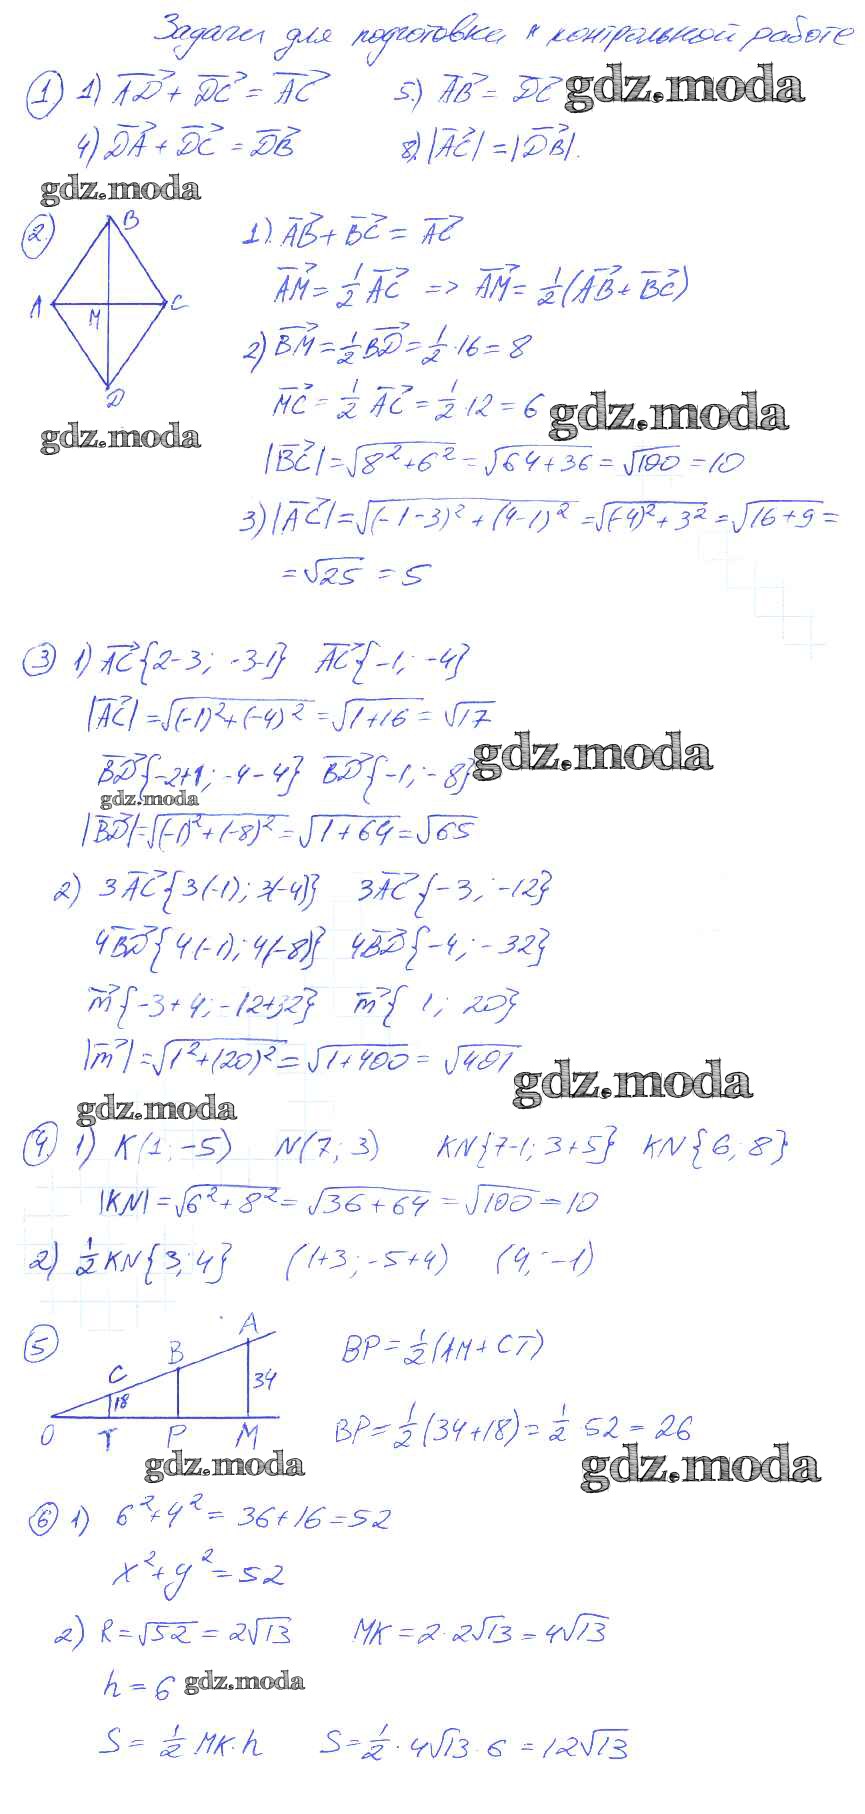 Задачи для подготовки к контрольной работе
① 1) AD + DC = AC 5.) AB = DC gdz.moda
4) DA + DC = DB 8.) |AC| = |DB|.
gdz.moda
② 1). AB + BC = AC
AM = 1/2 AC => AM = 1/2 (AB + BC)
2) BM = 1/2 BD = 1/2 · 16 = 8
MC = 1/2 AC = 1/2 · 12 = 6 gdz.moda
|BC| = √8²+6² = √64+36 = √100 = 10
3) |AC| = √(-1-3)² + (4-1)² = √(-4)² + 3² = √16+9 =
= √25 = 5
B
A M C
D
gdz.moda
③ 1) AC{2-3; -3-1} AC{-1; -4}
|AC| = √(-1)²+(-4)² = √1+16 = √17
BD{-2+1; -4-4} BD{-1; -8} gdz.moda
gdz.moda
|BD| = √(-1)²+(-8)² = √1+64 = √65
2) 3AC{3(-1); 3(-4)} 3AC{-3; -12}
4BD{4(-1); 4(-8)} 4BD{-4; -32}
m{-3+4; -12+32} m{1; 20}
|m| = √1²+(20)² = √1+400 = √401
gdz.moda
gdz.moda
④ 1) K(1; -5) N(7; 3) KN{7-1; 3+5} KN{6; 8}
|KN| = √6²+8² = √36+64 = √100 = 10
2) 1/2 KN{3; 4} (1+3; -5+4) (4; -1)
⑤ BP = 1/2 (AM + CT)
BP = 1/2 (34+18) = 1/2 52 = 26
A
B
C
34
18
O T P M
gdz.moda
gdz.moda
⑥ 1) 6²+4² = 36+16 = 52
x²+y² = 52
2) R = √52 = 2√13 MK = 2 · 2√13 = 4√13
h = 6 gdz.moda
S = 1/2 MK · h S = 1/2 · 4√13 · 6 = 12√13